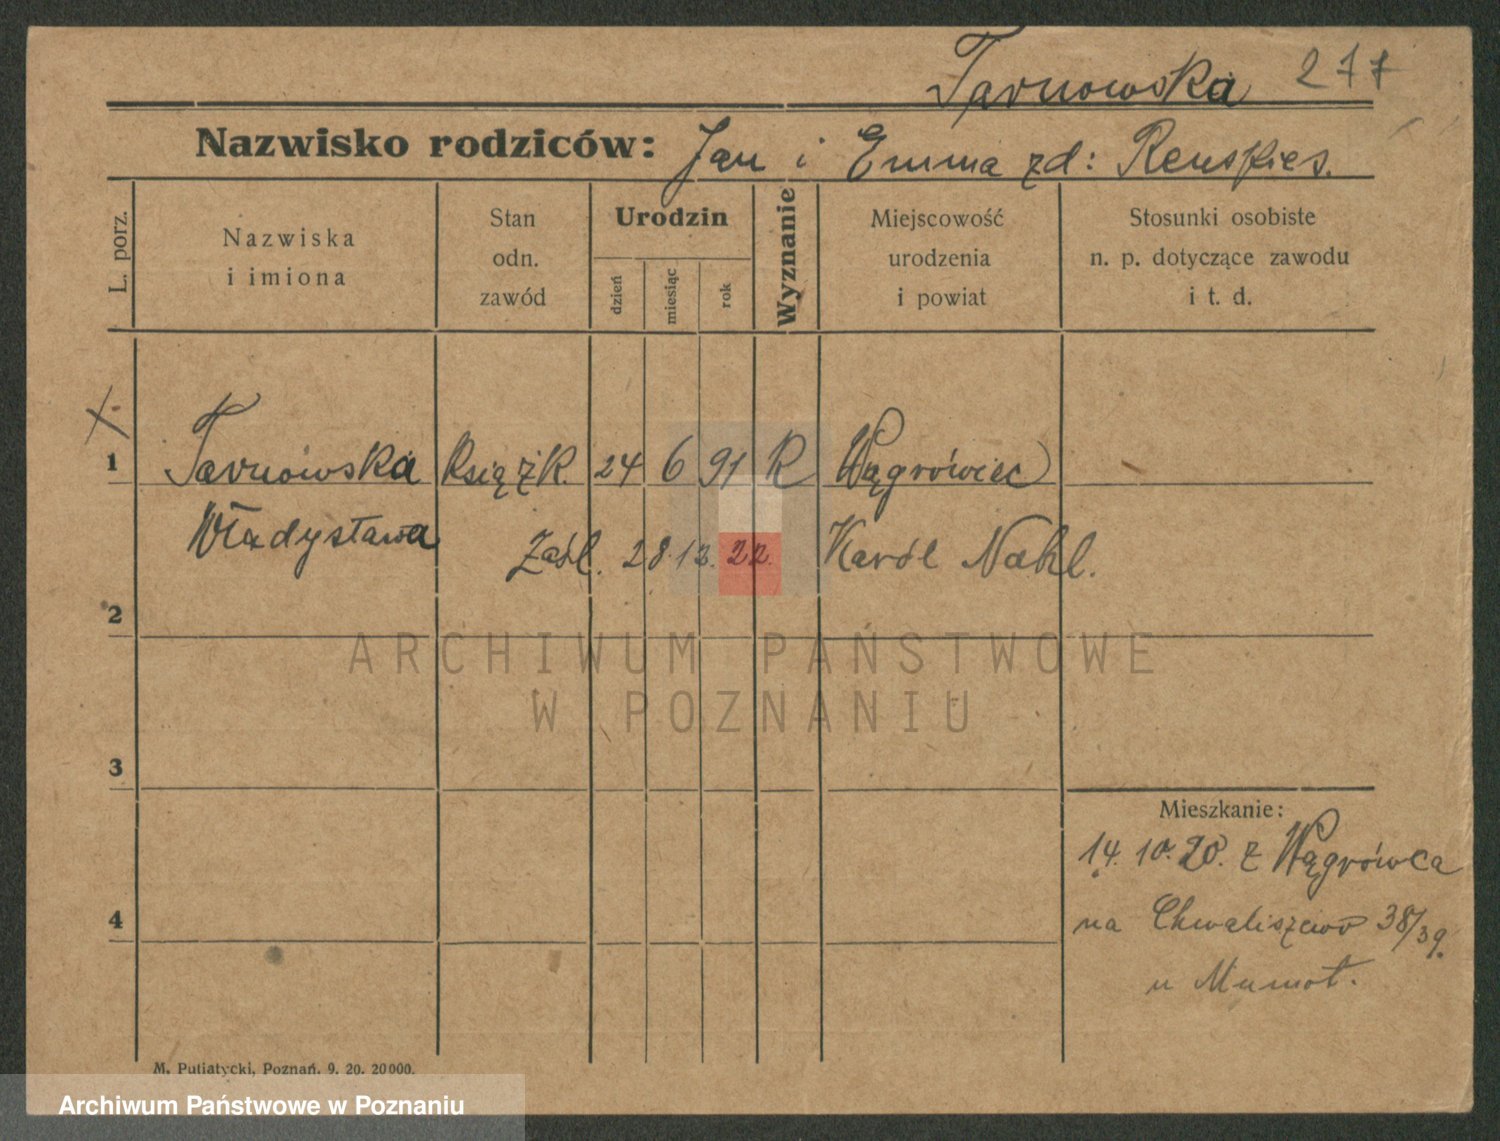 Tarnowska 277
Nazwisko rodziców: Jan i Emma zd: Renspies.
L. porz.
Nazwiska
i imiona
Stan
odn.
zawód
Urodzin
dzień
miesiąc
rok
Wyznanie
Miejscowość
urodzenia
i powiat
Stosunki osobiste
n. p. dotyczące zawodu
i t. d.
1 Tarnowska Książk. 24 6 91 R Wągrówiec
Władysława Zaśl. 28. 22. Karol Nahl.
2
ARCHIWUM PAŃSTWOWE
W POZNANIU
3
Mieszkanie:
14. 10. 20. z Wągrówca
4
na Chwaliszewo 38/39.
u Mumot.
M. Putiatycki, Poznań. 9. 20. 20000.
Archiwum Państwowe w Poznaniu